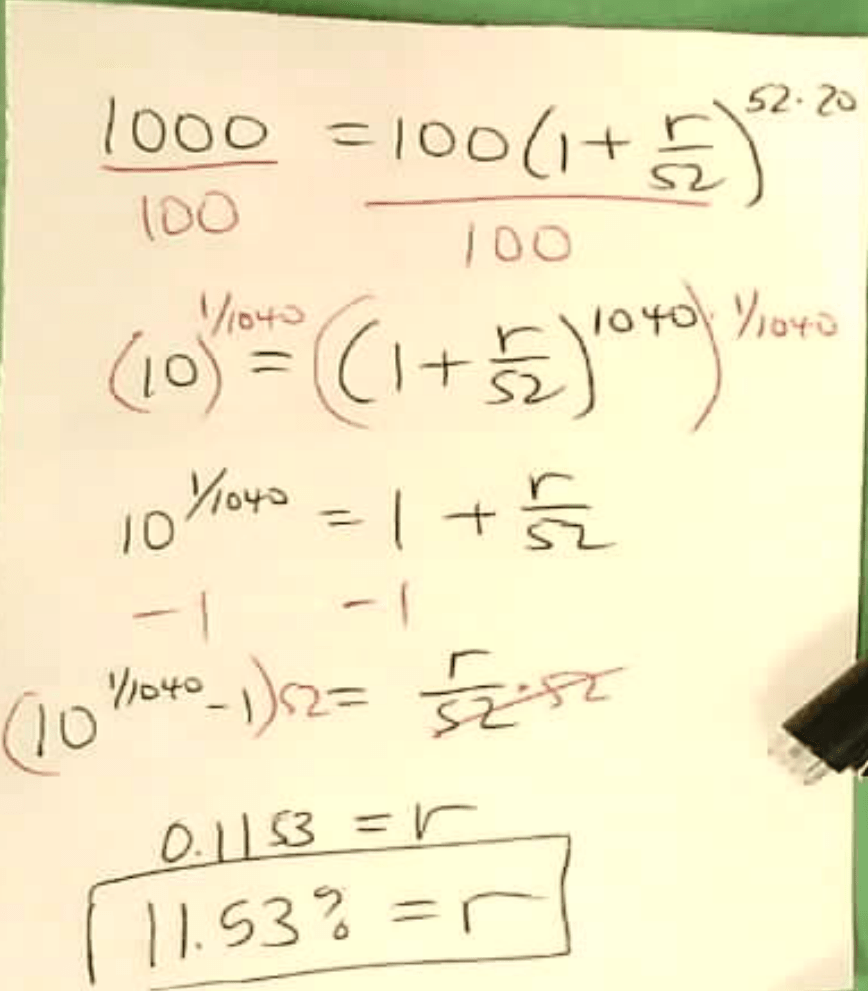 1000 = 100(1 + r/52)^52·20
100 100
(10)^1/1040 = ((1 + r/52)^1040)^1/1040
10^1/1040 = 1 + r/52
-1 -1
(10^1/1040 - 1)52 = r/52 · 52
0.1153 = r
11.53% = r